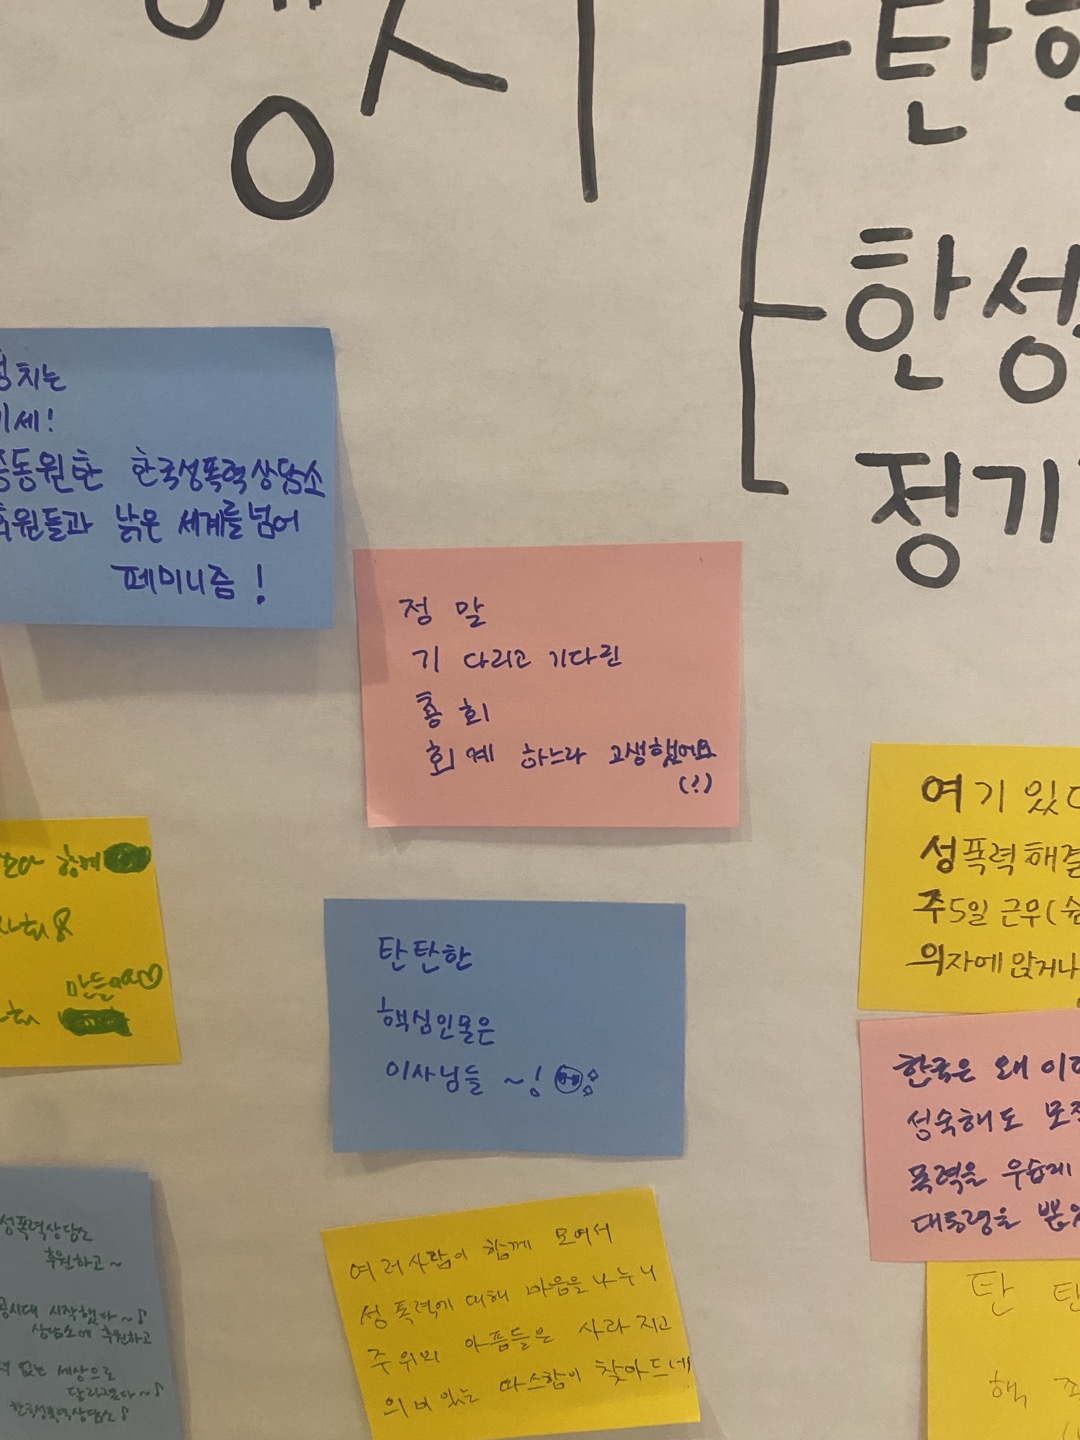 행시
탄핵
한성
정기
정치는
기세!
총동원한 한국성폭력상담소
후원들과 낡은 세계를 넘어
페미니즘!
정 말
기 다리고 기다린
총 회
회계 하느라 고생했어요
(!)
여기 있
성폭력해결
주5일 근무(
의자에 앉거나
함께
만들어요♡
탄탄한
핵심인물은
이사님들 ~!
한국은 왜 이
성숙해도 모
폭력을 우습게
대통령을 뽑
성폭력상담소
후원하고~
시대 시작했다~♪
상담소에 후원하고
없는 세상으로
달려간다~♪
한국성폭력상담소♪
여러사람이 함께 모여서
성폭력에 대해 마음을 나누니
주위의 아픔들은 사라지고
의미 있는 따스함이 찾아드네!
탄 탄
핵